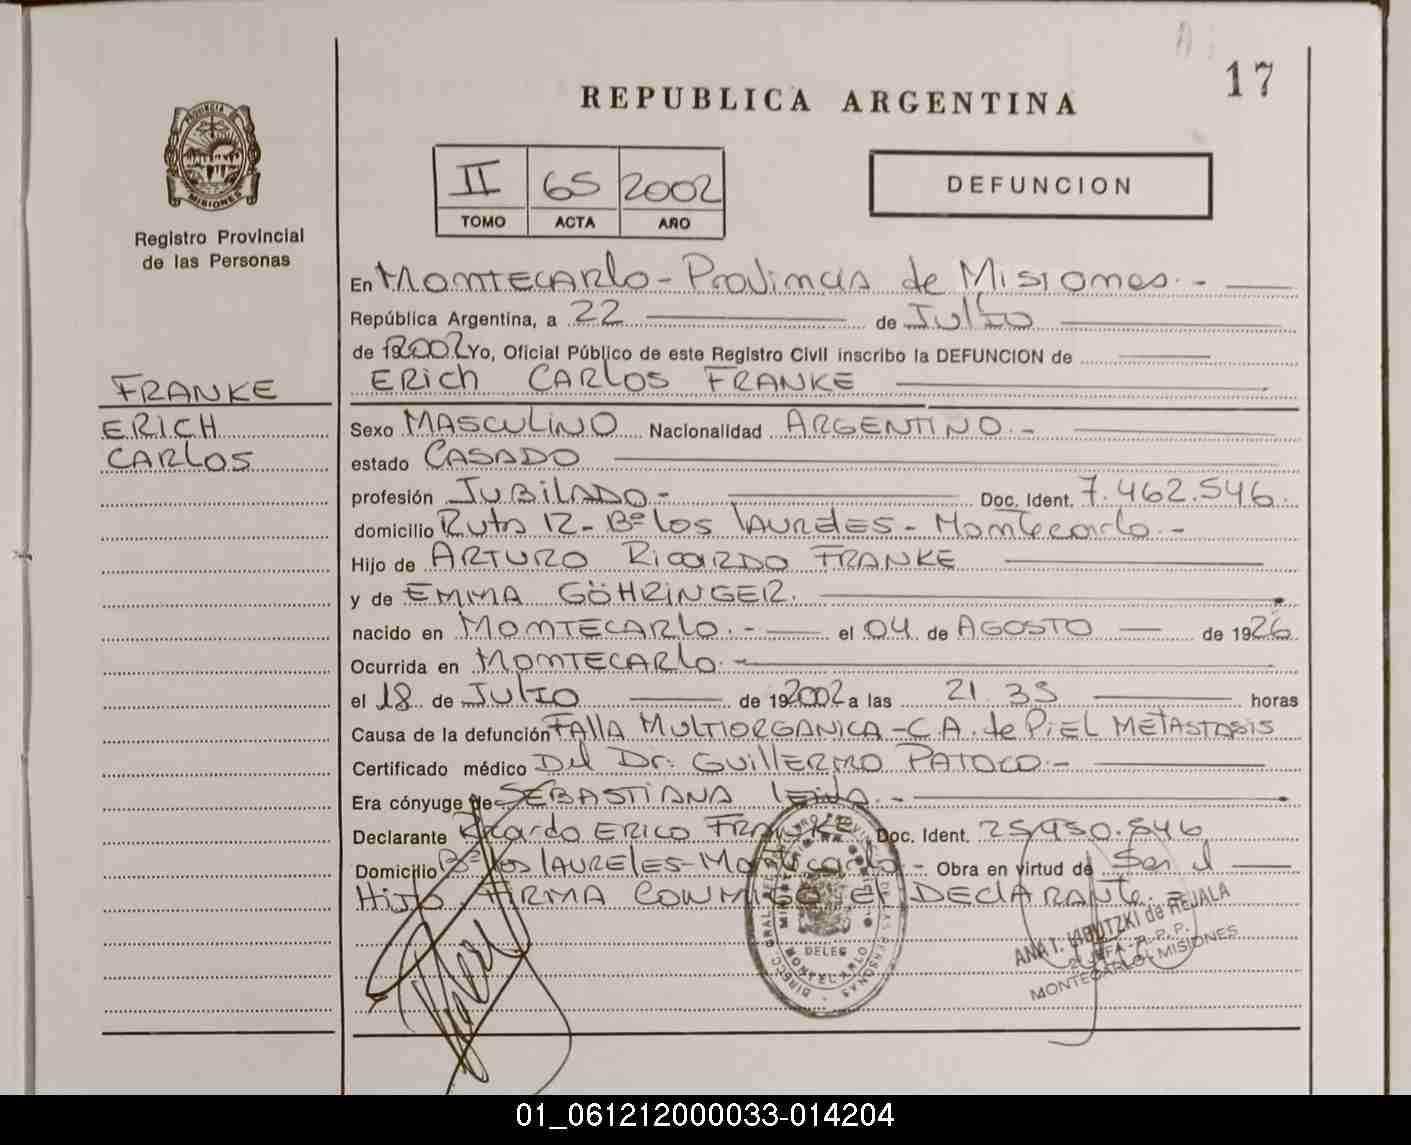 17
REPUBLICA ARGENTINA
PROVINCIA DE
MISIONES
Registro Provincial
de las Personas
II 65 2002
TOMO ACTA AÑO
DEFUNCION
En MONTECARLO - Provincia de Misiones.-
República Argentina, a 22 de Julio
de 192002 Yo, Oficial Público de este Registro Civil inscribo la DEFUNCION de
ERich CARLOS FRANKE
FRANKE
ERICH
CARLOS
Sexo MASCULINO Nacionalidad ARGENTINO.-
estado CASADO
profesión JUBILADO- Doc. Ident. 7.462.546.
domicilio Ruta 12 - Bº los lAUReleS - Montecarlo.-
Hijo de ARTURO RicARDO FRANKE
y de EMMA GÖHRINGER.
nacido en MONTECARLO.- el 04 de AGOSTO de 1926
Ocurrida en MONTECARLO.-
el 18 de Julio de 192002 a las 21.35 horas
Causa de la defunción FAllA MULTIORGANICA - C.A. de PiEL METASTASIS
Certificado médico Del Dr: GUillERMO PATOCO.-
Era cónyuge de SEBASTIANA leiva.-
Declarante Ricardo ERICO FRANKE Doc. Ident. 25.950.546
Domicilio Bº los lAURELES - Montecarlo - Obra en virtud de Ser el
HiJO FIRMA CONMIGO el DEClARANTE.=
DELEG
ANA T. de REJALA
MONTECARLO - MISIONES
01_061212000033-014204